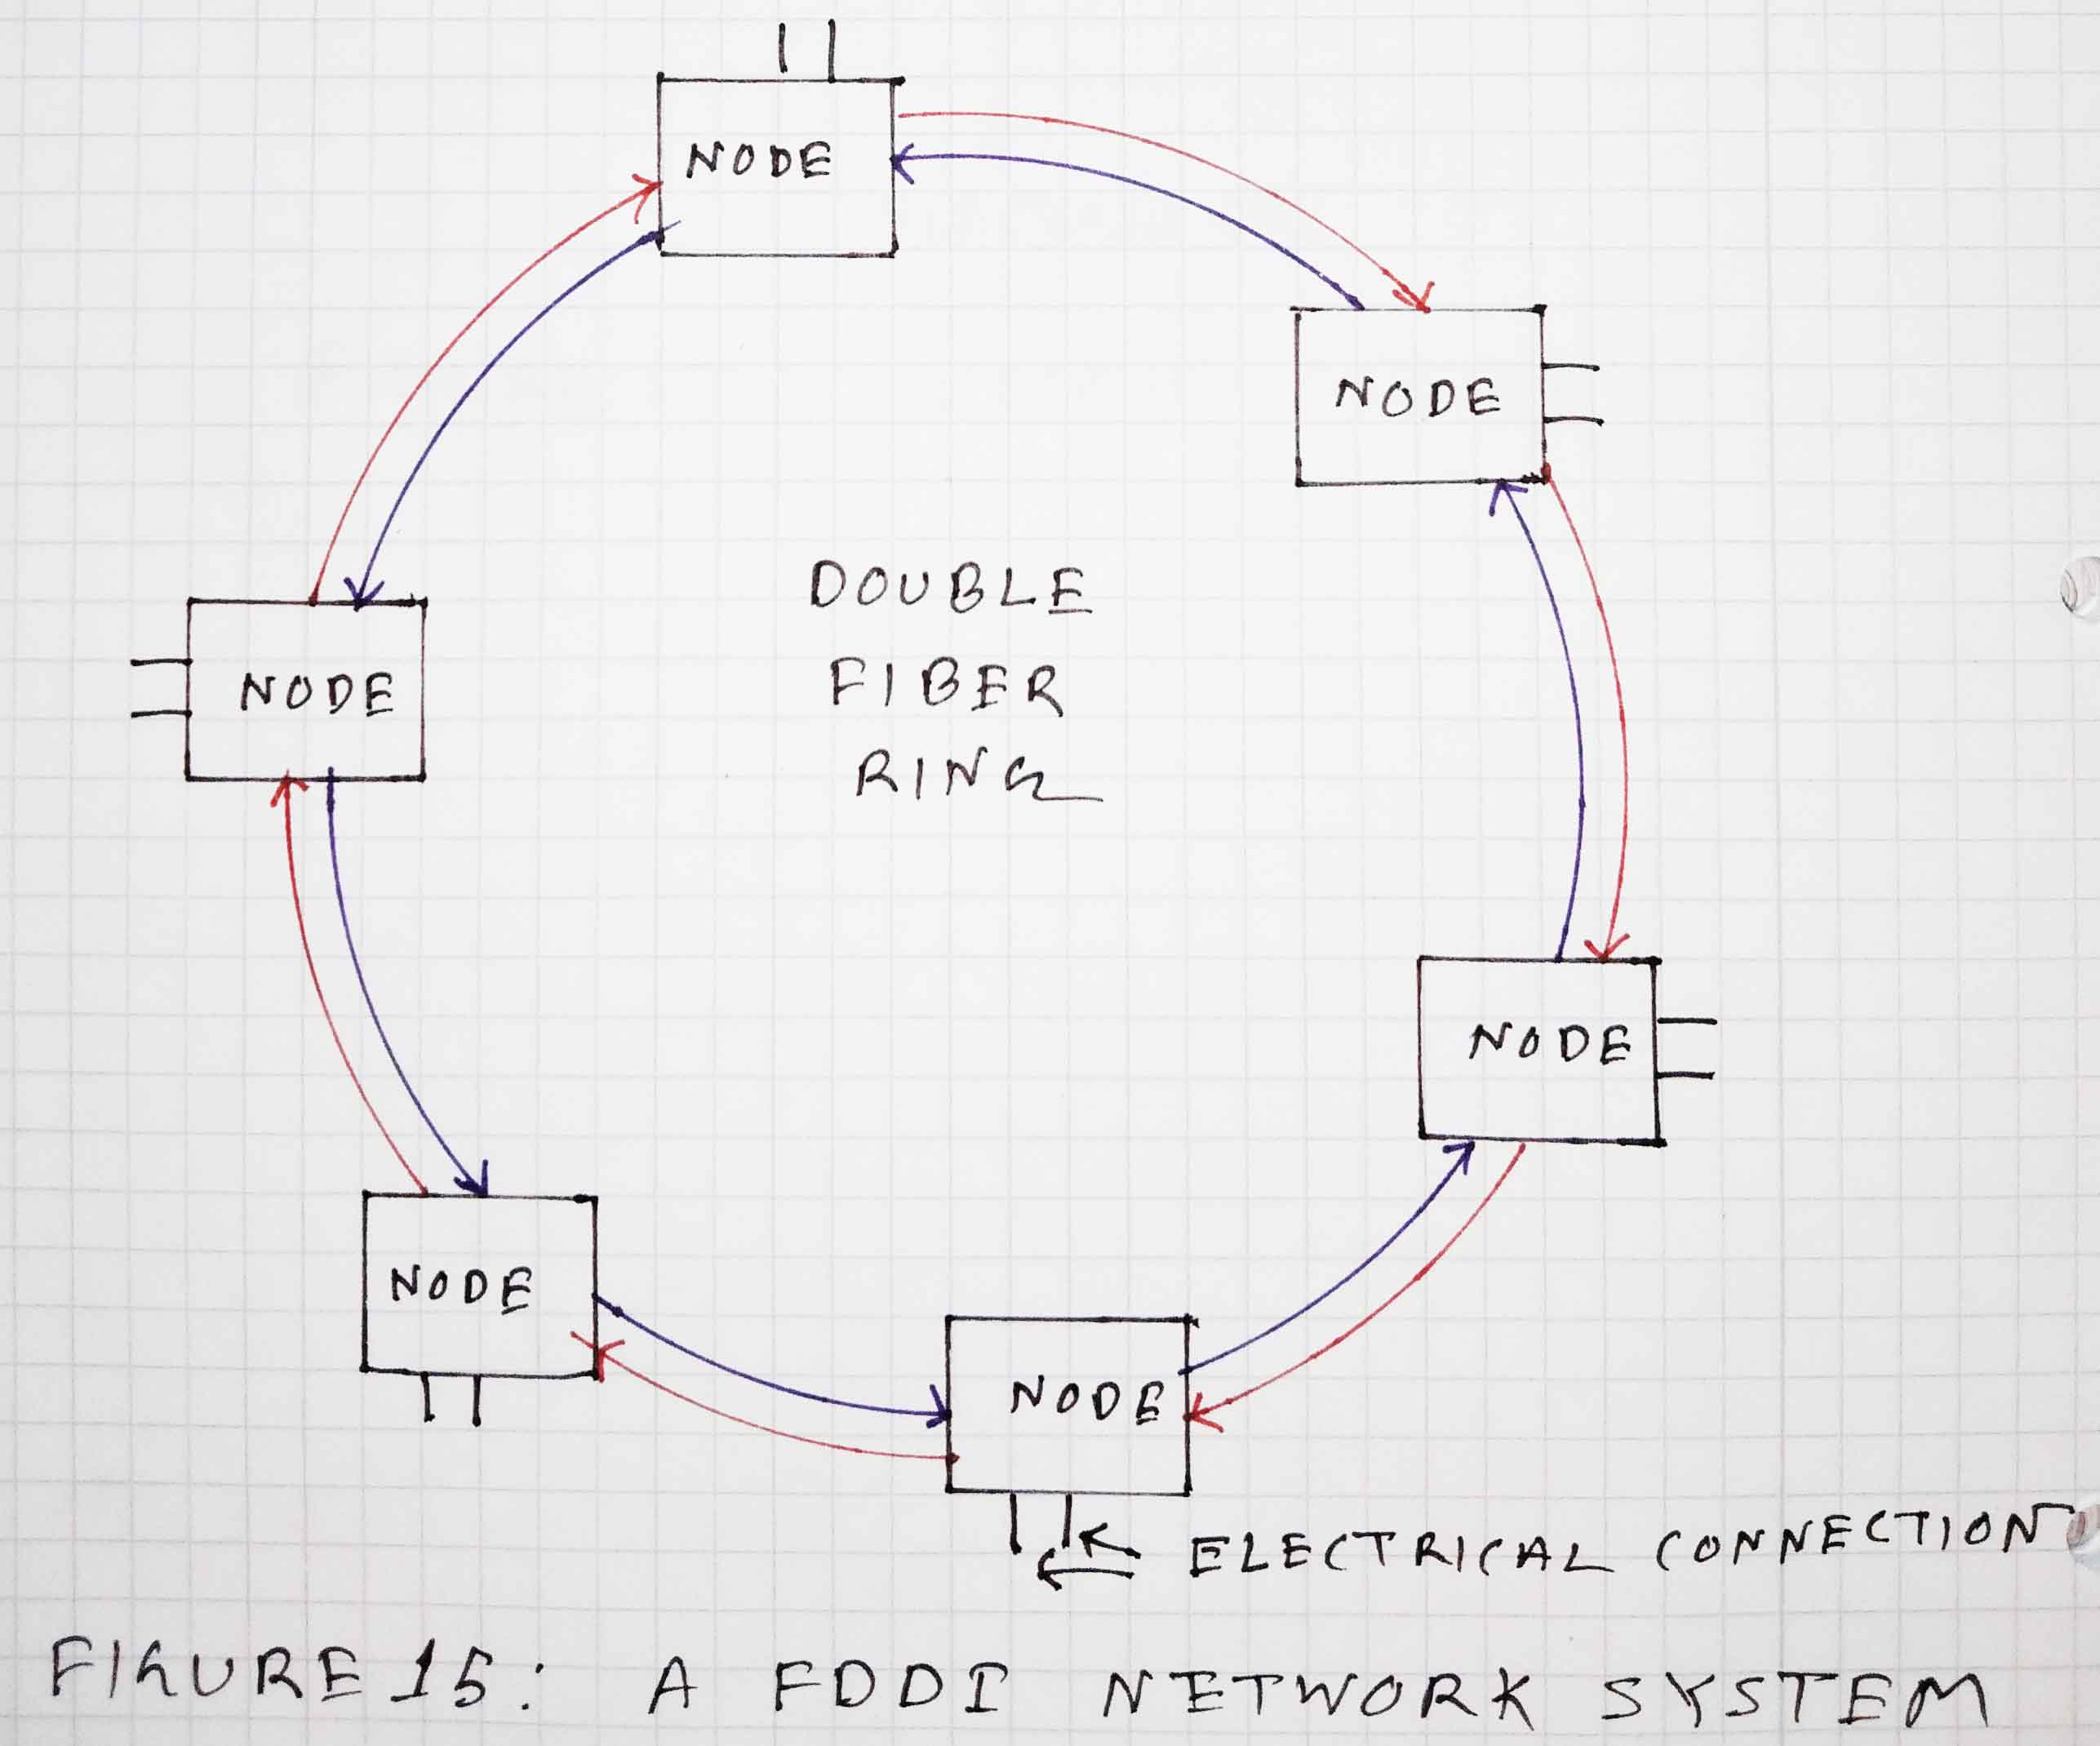 NODE
NODE
DOUBLE
FIBER
RING
NODE
NODE
NODE
NODE
ELECTRICAL CONNECTION
FIGURE 15: A FDDI NETWORK SYSTEM